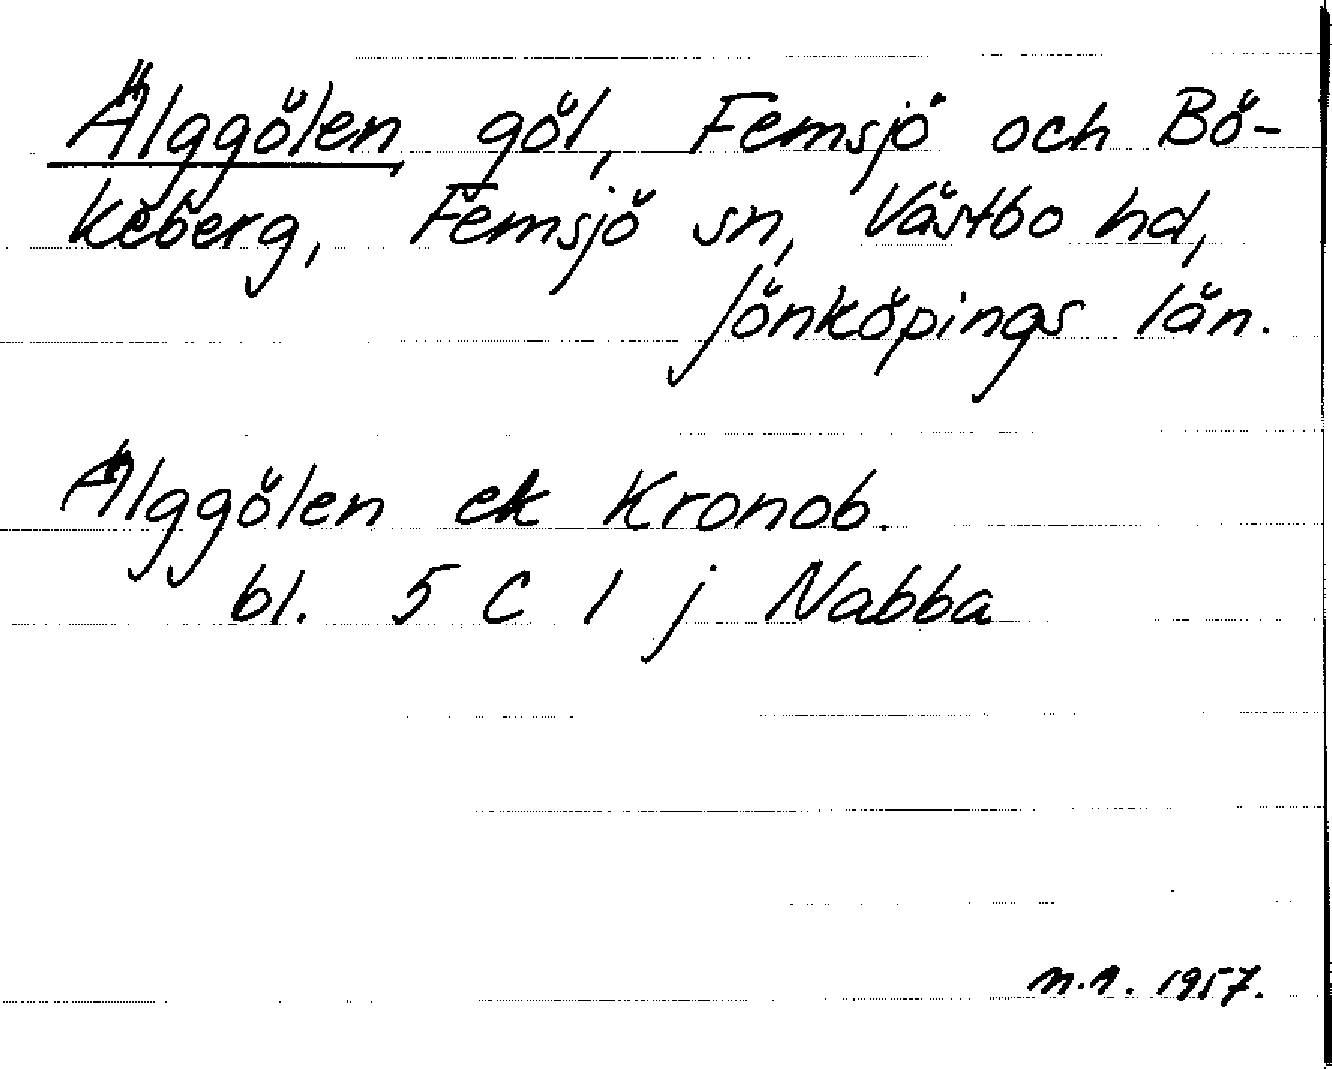 Älggölen göl, Femsjö och Bö-
keberg, Femsjö sn, Västbo hd,
Jönköpings län.
Älggölen ek Kronob.
bl. 5 C 1 j Nabba
n.n. 1957.